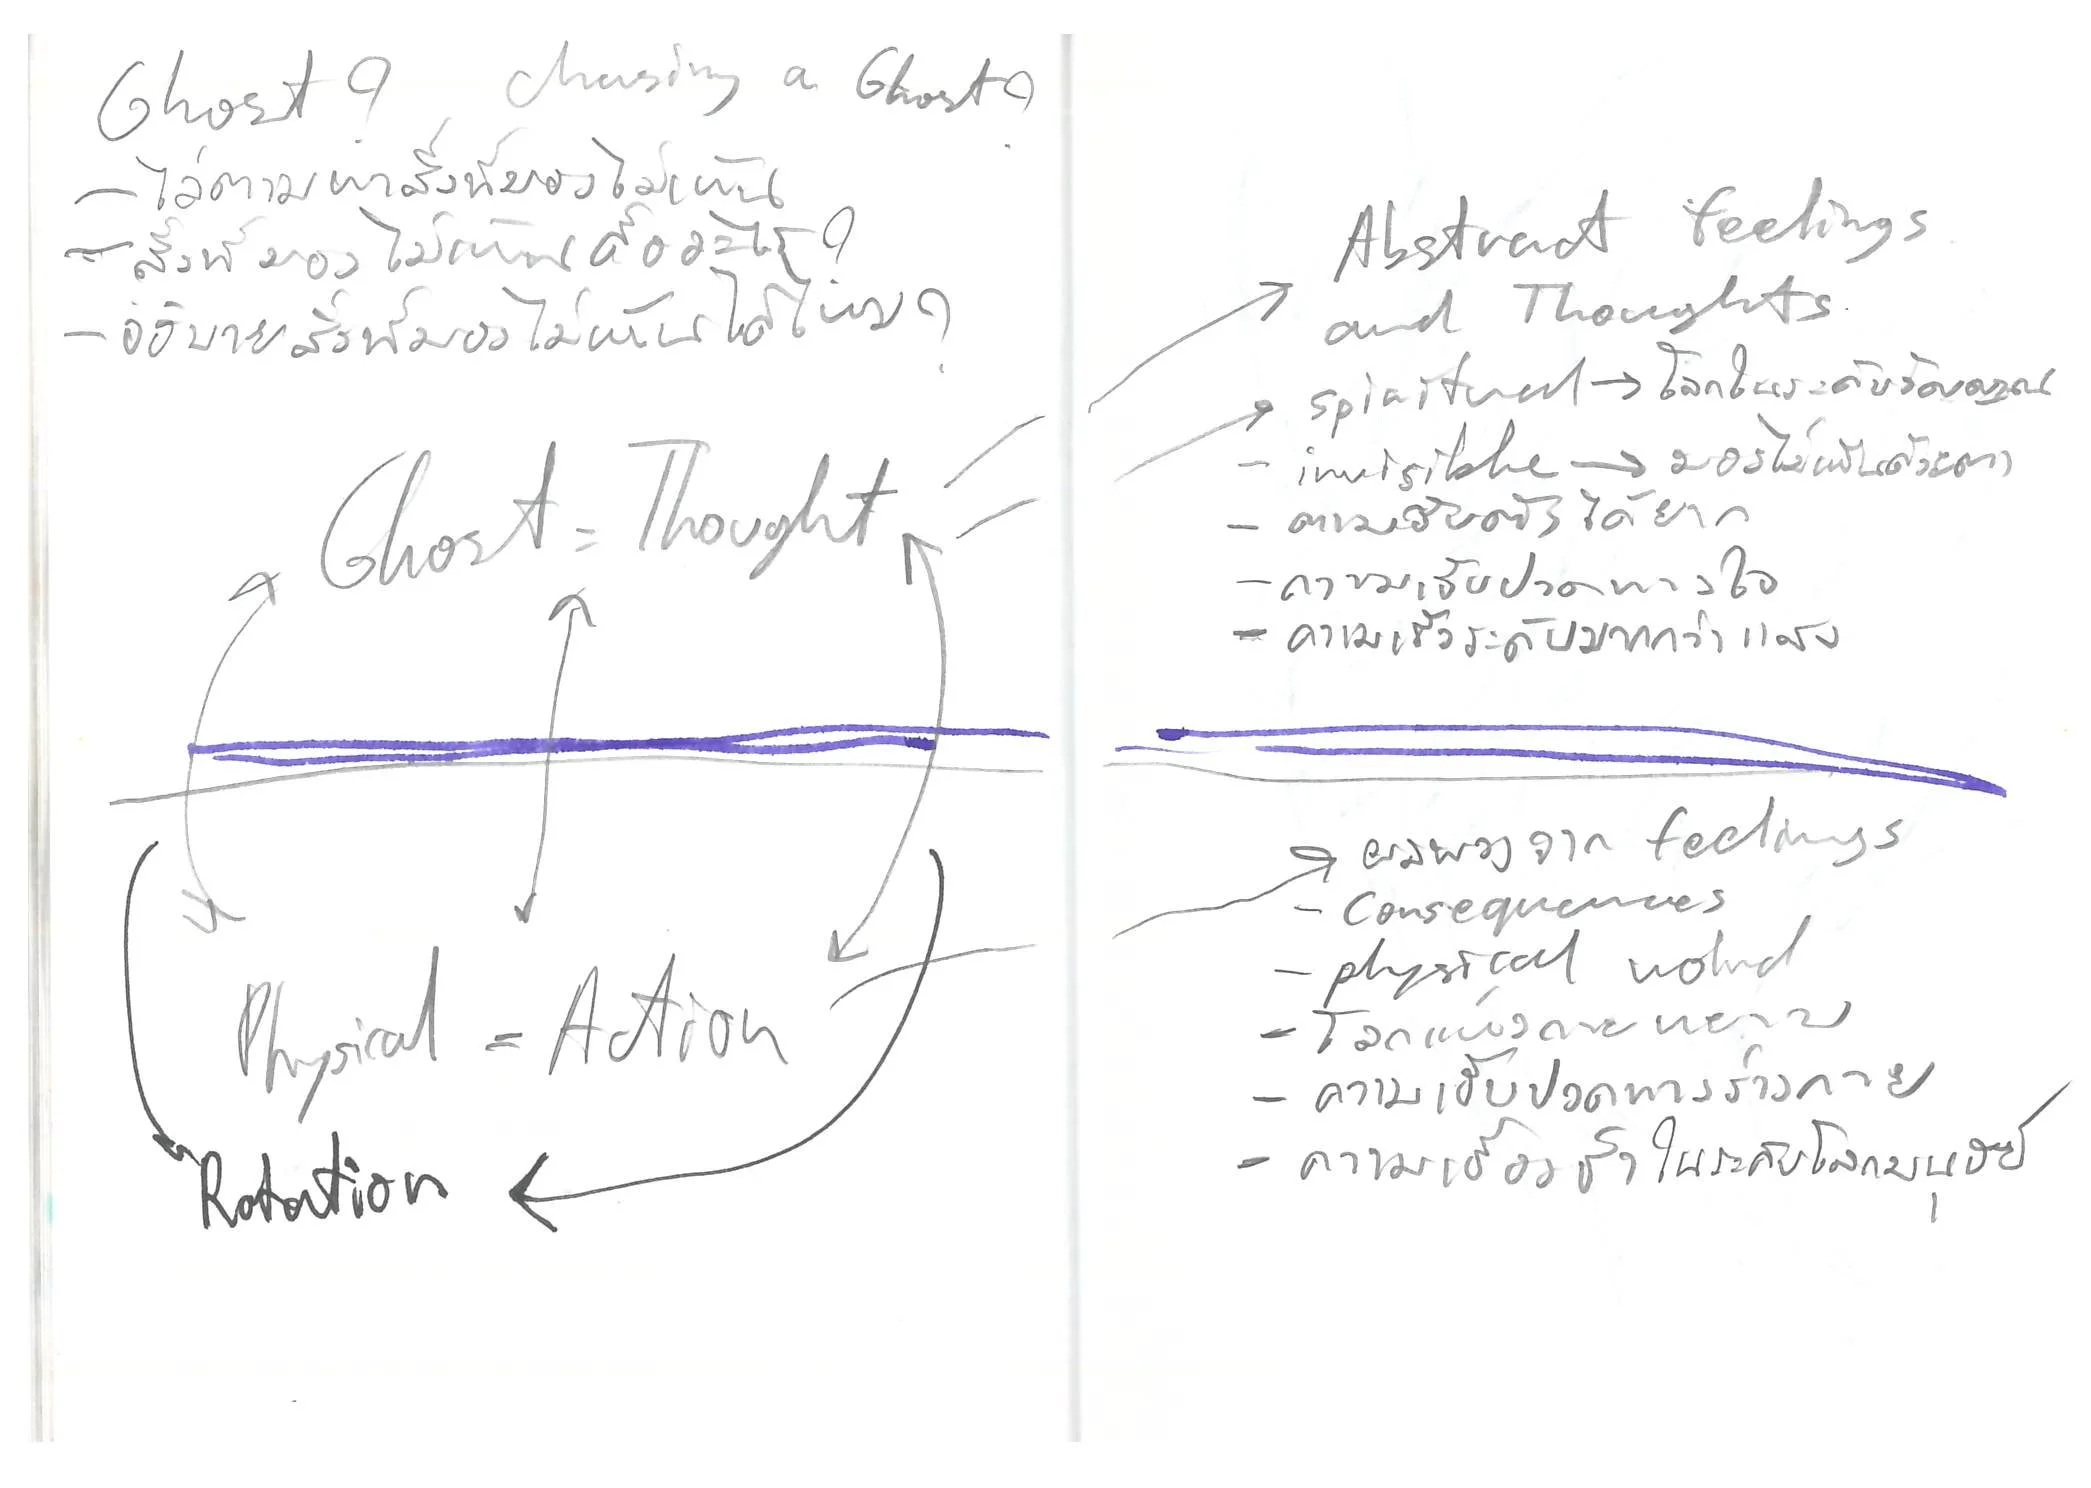 Ghost? chasing a Ghost?
- ไล่ตามหาสิ่งที่มองไม่เห็น
- สิ่งที่มองไม่เห็นคืออะไร?
- อธิบายสิ่งที่มองไม่เห็นได้ไหม?
Ghost = Thought
Physical = Action
Rotation
Abstract feelings
and Thoughts.
spiritual → โลกในระดับวิญญาณ
- invisible → มองไม่เห็นด้วยตา
- ได้ยาก
- ความเจ็บปวดทางใจ
- ความเร็วระดับมากกว่าแสง
ผลพวงจาก feelings
- Consequences
- physical world
- โลกแห่งกายหยาบ
- ความเจ็บปวดทางร่างกาย
- ความเชื่องช้าในระดับโลกมนุษย์